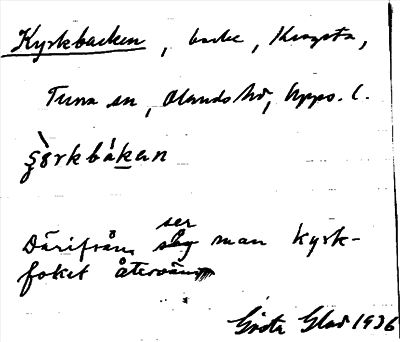 Kyrkbacken, backe, Kragsta,
Tuna sn, Olands hd, Upps. l.
Därifrån ser man kyrk-
foket återvänd
Gösta Glad 1936